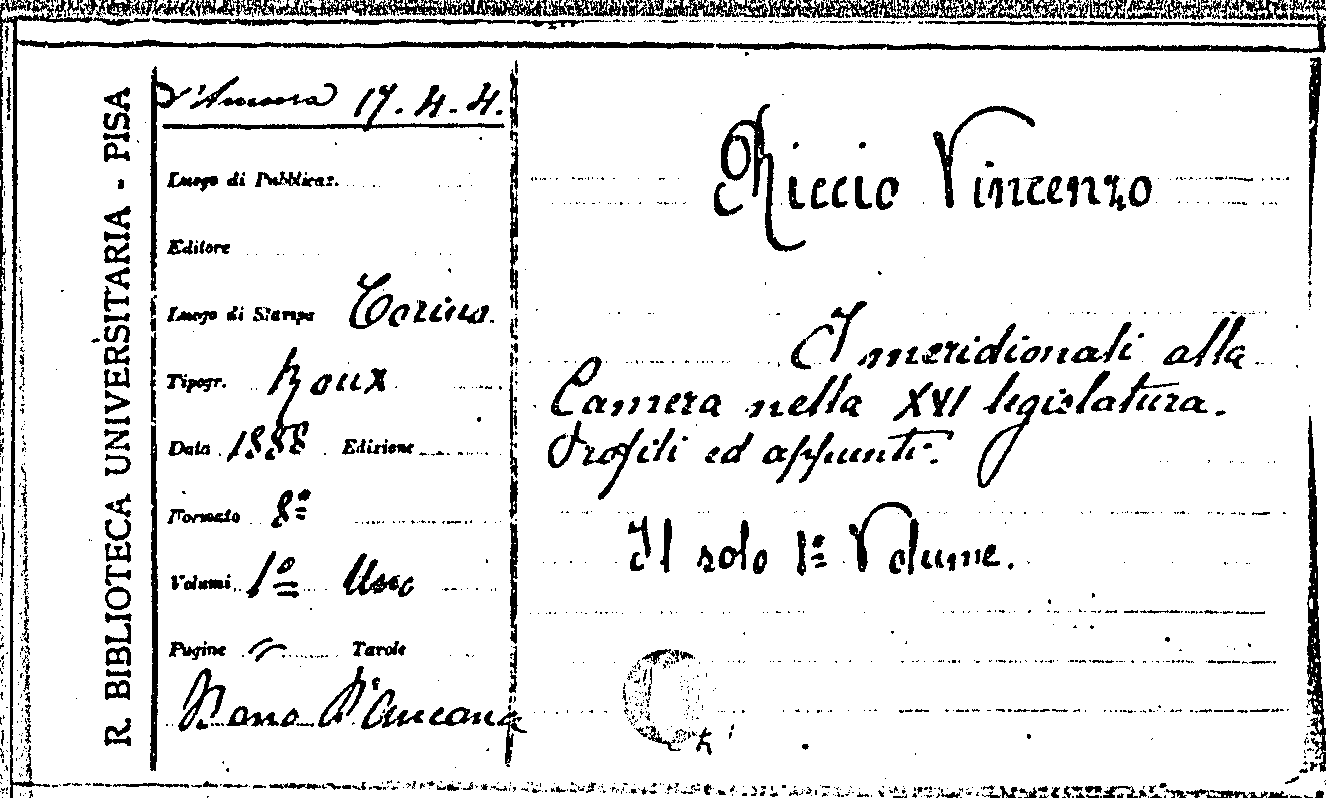 R. BIBLIOTECA UNIVERSITARIA - PISA
D'Ancona 17.4.4.
Luogo di Pubblicaz.
Editore
Luogo di Stampa Torino.
Tipogr. Roux
Data 1888 Edizione
Formato 8º
Volumi 1º Uno
Pagine Tavole
Dono D'Ancona
Riccio Vincenzo
I meridionali alla
Camera nella XVI legislatura.
Profili ed appunti.
Il solo 1º Volume.